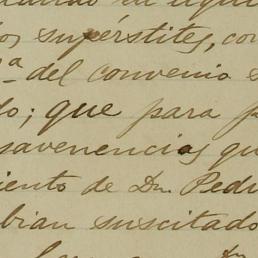 los supérstites, con
ª del convenio
do; que para p
savenencias qu
iento de Dn. Pedr
bian suscitado